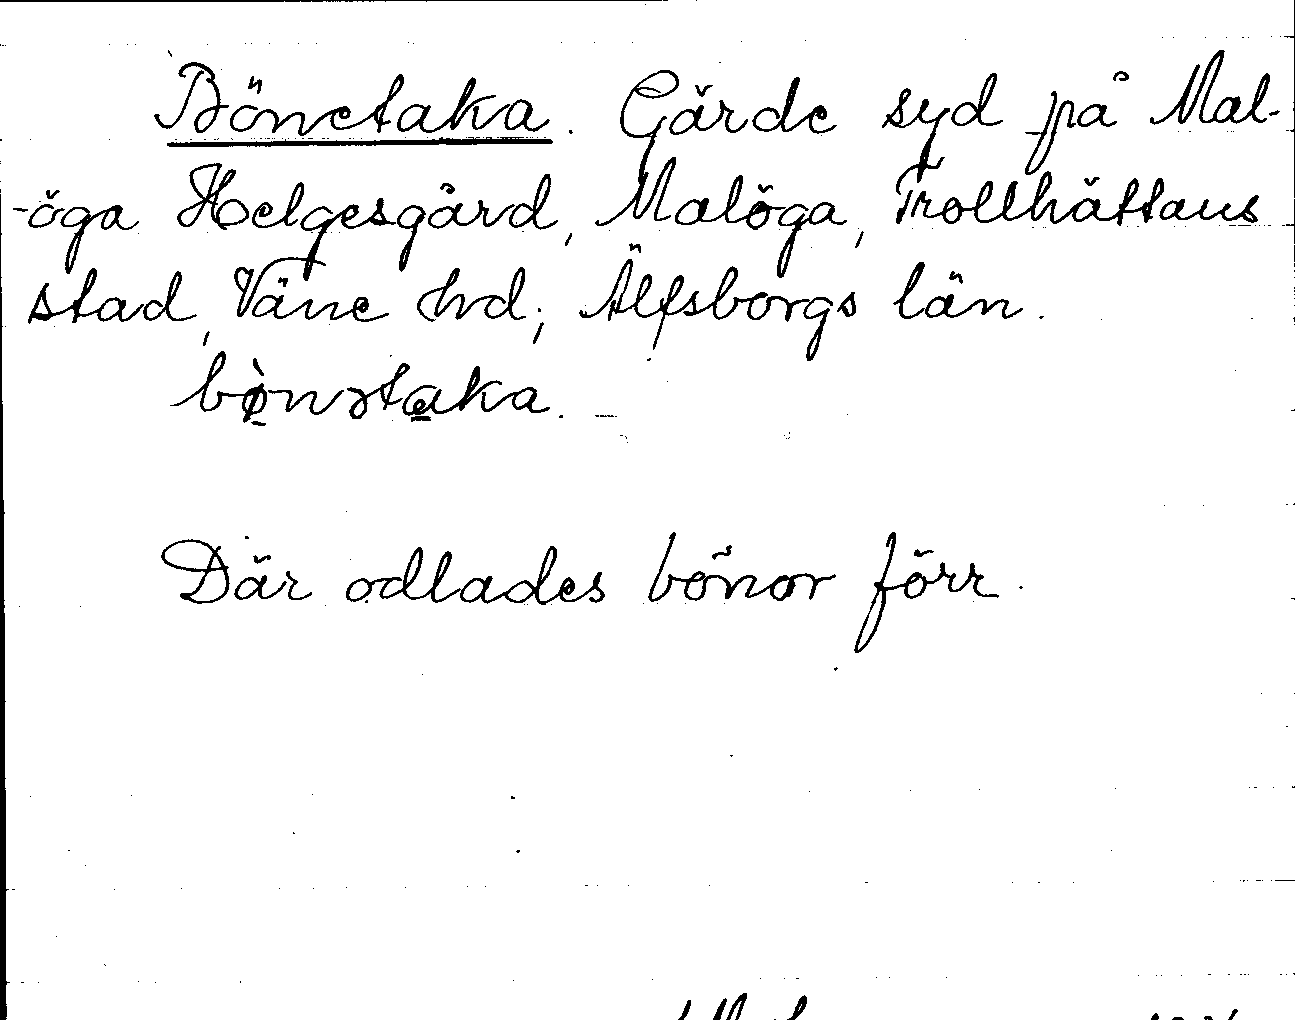 Bönetaka. Gärde syd på Mal-
-öga Helgesgård, Malöga, Trollhättans
stad, Väne hd; Älfsborgs län.
bø̀nətaka.
Där odlades bönor förr.